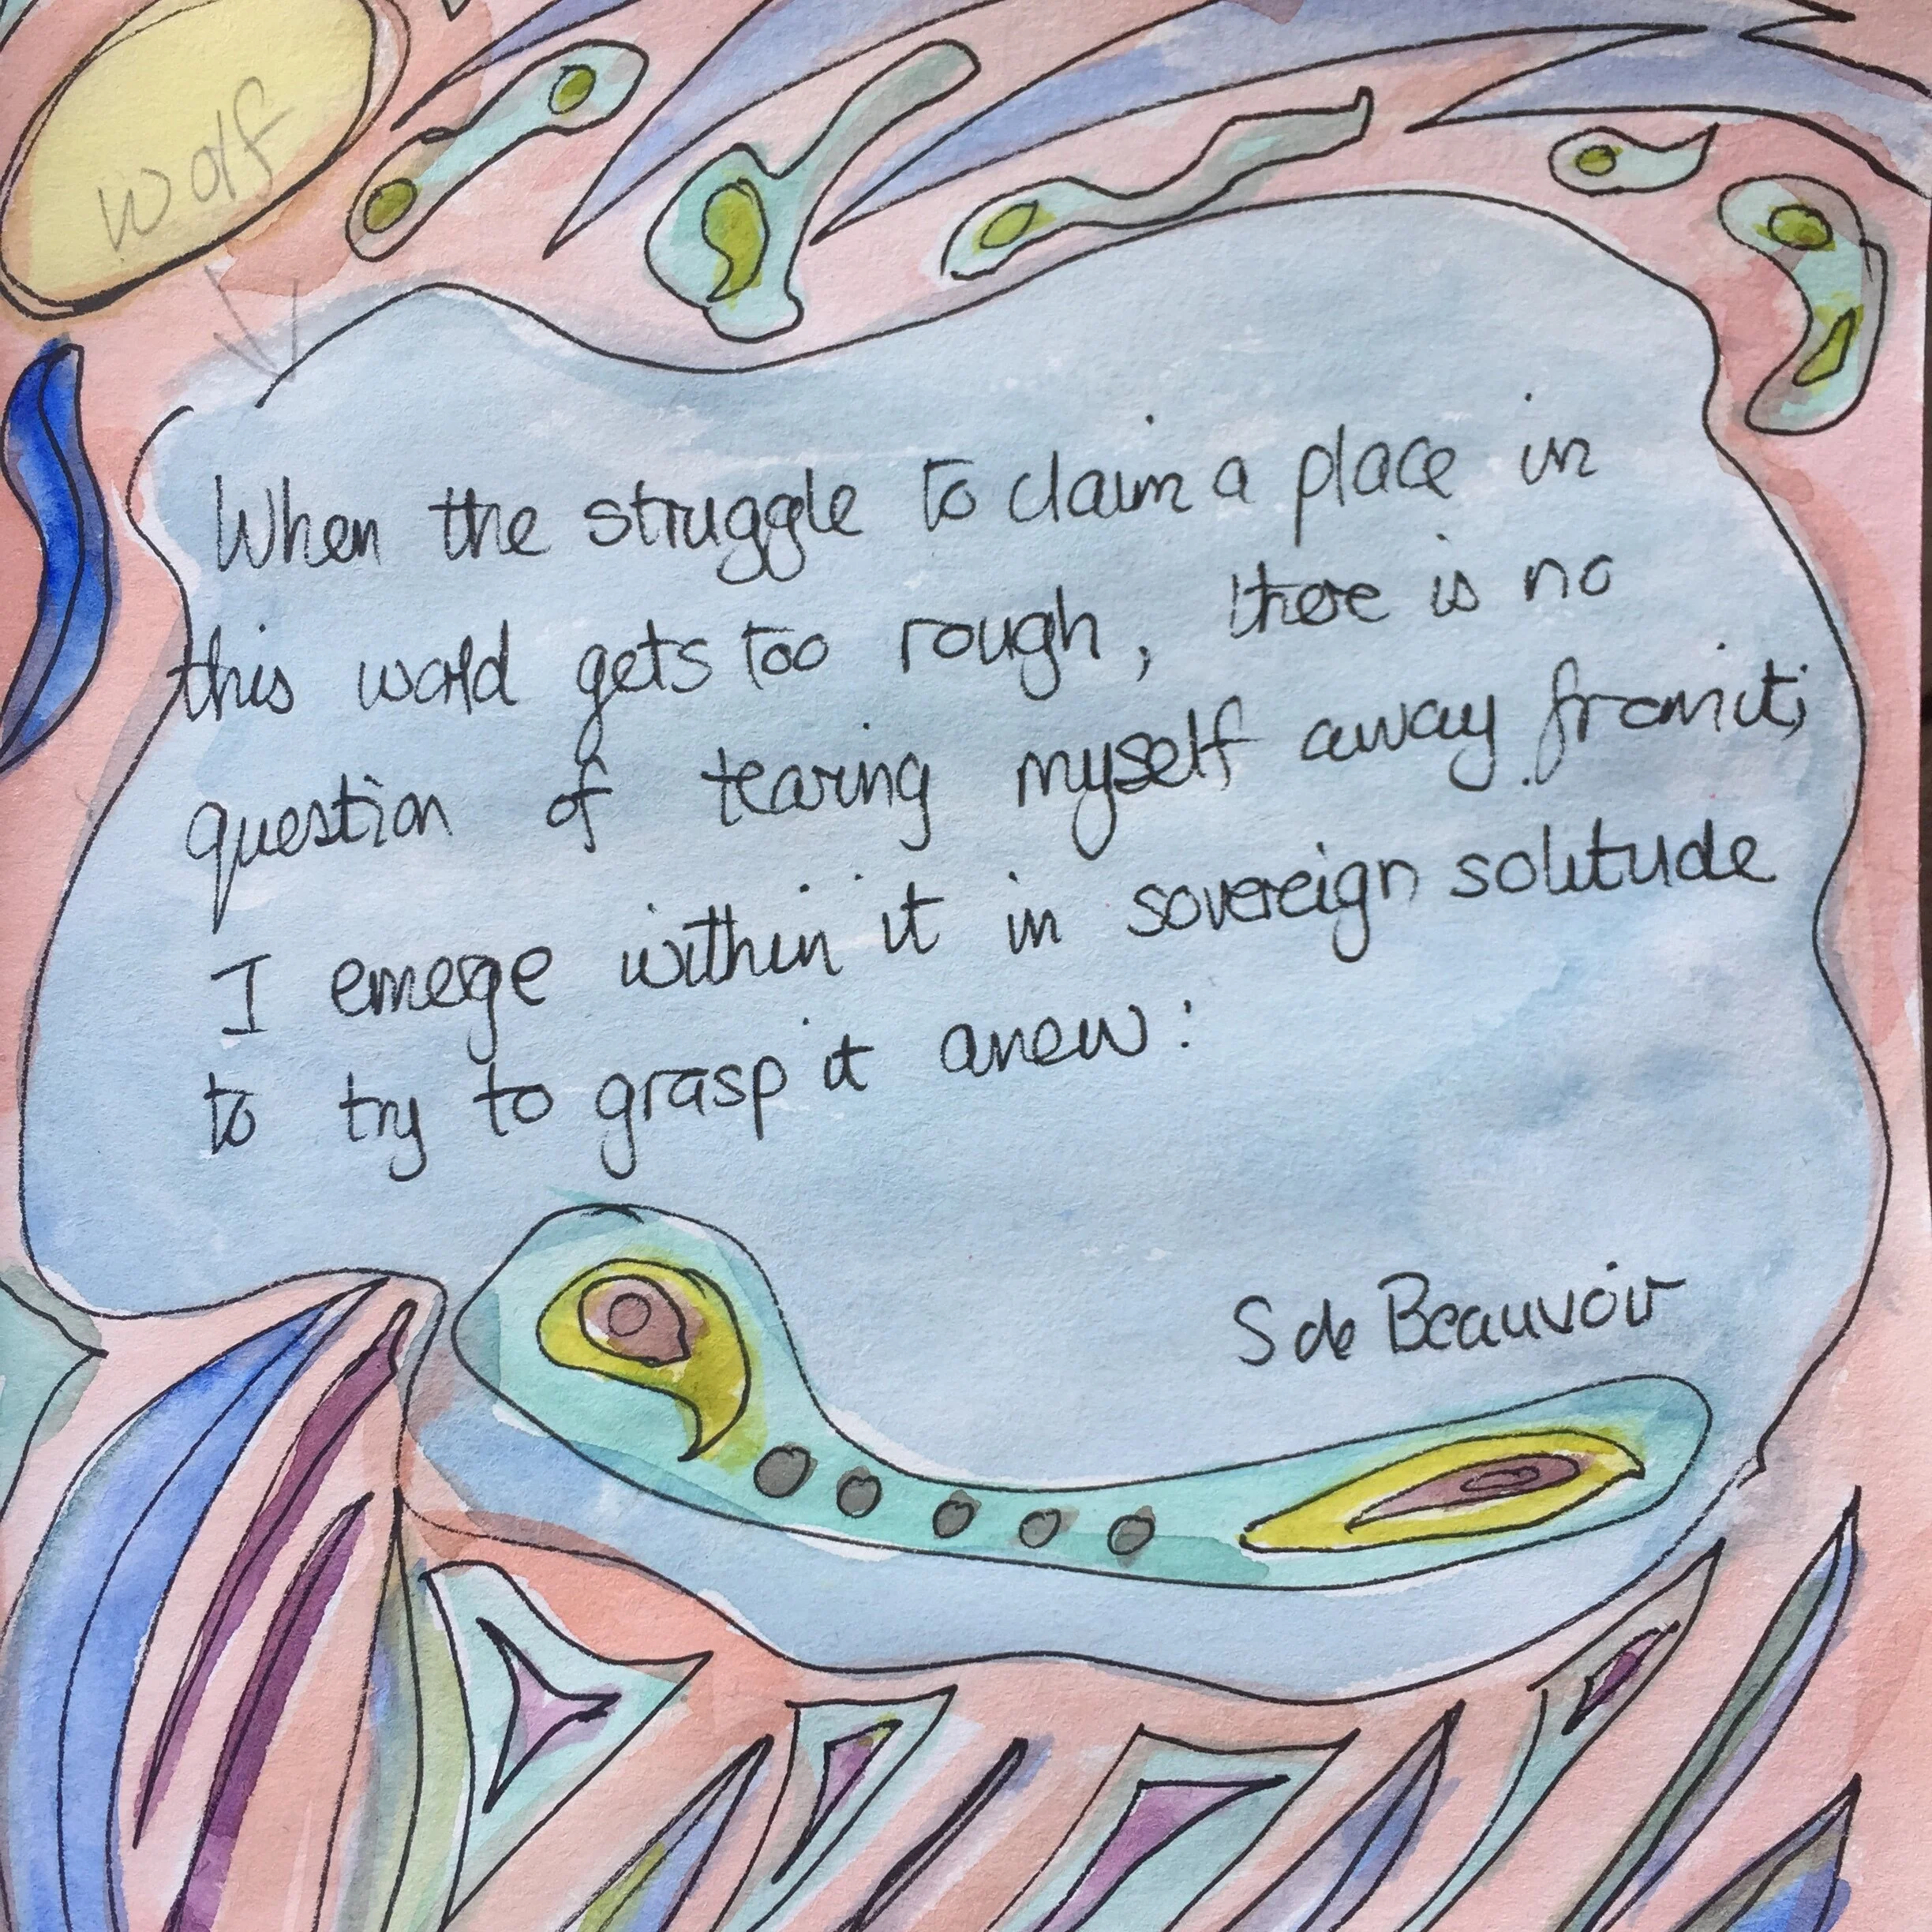 wolf
When the struggle to claim a place in
this world gets too rough, there is no
question of tearing myself away from it;
I emerge within it in sovereign solitude
to try to grasp it anew:
S de Beauvoir